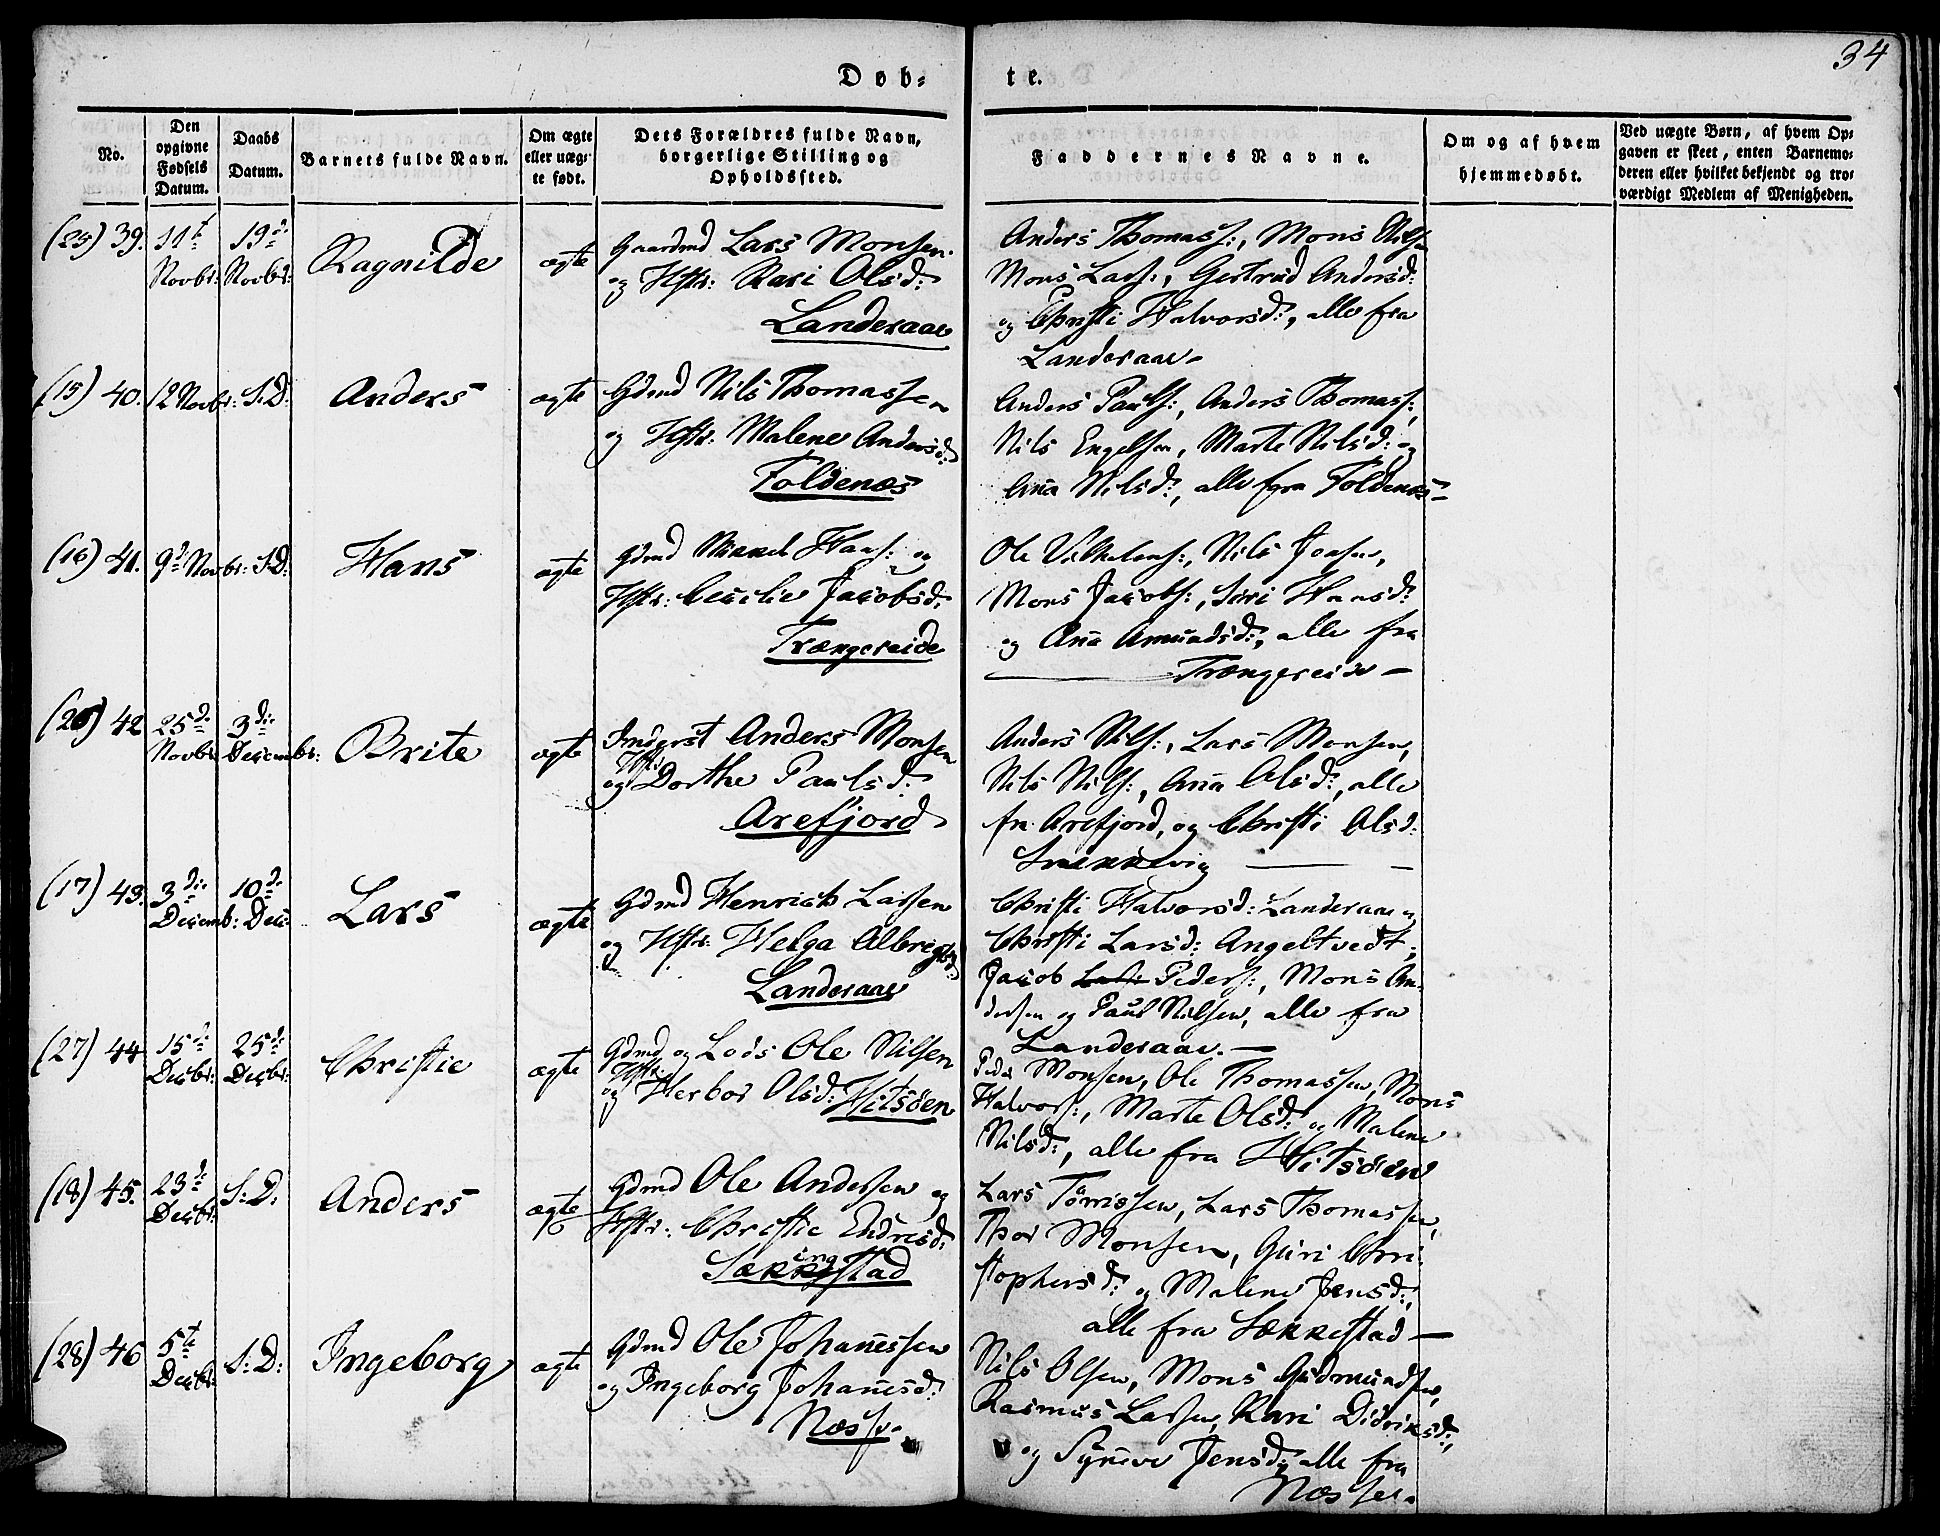 34
Døb-
te.
No.
Den opgivne Fødsels Datum.
Daabs Datum.
Barnets fulde Navn.
Om ægte eller uæg-te født.
Dets Forældres fulde Navn, borgerlige Stilling og Opholdssted.
Faddernes Navne.
Om og af hvem hjemmedøbt.
Ved uægte Børn, af hvem Op-gaven er skeet, enten Barnemo-deren eller hvilket bekjendt og tro-værdigt Medlem af Menigheden.
(25) 39. 11te Novbr: 19de Novbr: Ragnilde ægte
Gaardmd Lars Monsen
og Hstr: Kari Olsd:
Landeraae
Anders Thomass:, Mons Nils
Mons Lars:, Gertrud Andersd:
og Christi Halvorsd:, alle fra
Landeraae-
(15) 40. 12 Novbr: S.D: Anders ægte
Gdmd Nils Thomassen
og Hstr: Malene Andersd:
Foldenæs
Anders Pauls:, Anders Thomass:,
Nils Engelsen, Marte Nilsd: og
Aña Nilsd:, alle fra Foldenæs-
(16) 41. 9de Novbr: S.D: Hans ægte
Gdmd Mikkel Hans: og
Hstr: Cecilie Jacobsd:
Trængereide
Ole Vilhelms:, Nils Jonsen,
Mons Jacobs:, Siri Hansd:
og Aña Amundsd:, alle fra
Trængereide-
(26) 42 25de Novbr 3die Decembr: Brite ægte
Inderst Anders Monsen
og Hstr: Dorthe Paulsd:
Arefjord
Anders Nils:, Lars Monsen,
Nils Nils:, Aña Olsd:, alle
fra Arefjord, og Christi Olsd:
Snekkevig
(17) 43. 3die Decemb: 10de Decbr: Lars ægte
Gdmd Henrich Larsen
og Hstr: Helga Albrigtsd:
Landeraae
Christi Halvorsd: Landeraae og
Christi Larsd: Angeltvedt,
Jacob Peders:, Mons An-
dersen og Paul Nilsen, alle fra
Landeraae.-
(27) 44 15de Decbr: 25de Decbr: Christie ægte
Gdmd og Lods Ole Nilsen
og Hstr: Herbor Olsd: Hitsöen
Peder Monsen, Ole Thomassen, Mons
Halvors:, Marte Olsd: og Malene
Nilsd:, alle fra Hitsöen
(18) 45. 23de Decbr: S:D: Anders ægte
Gdmd Ole Andersen og
Hstr: Christie Endresd:
Sækkingstad
Lars Törrissen, Lars Thomassen,
Thor Monsen, Guri Chri-
stophersd: og Malene Jensd:,
alle fra Sækkestad-
(28) 46 5te Decbr: S:D: Ingeborg ægte
Gdmd Ole Johañessen
og Ingeborg Johañesd:
Næsse.
Nils Olsen, Mons Gudmundsen,
Rasmus Larsen, Kari Didriksd:,
og Syñeve Jensd: alle fra
Næsse.